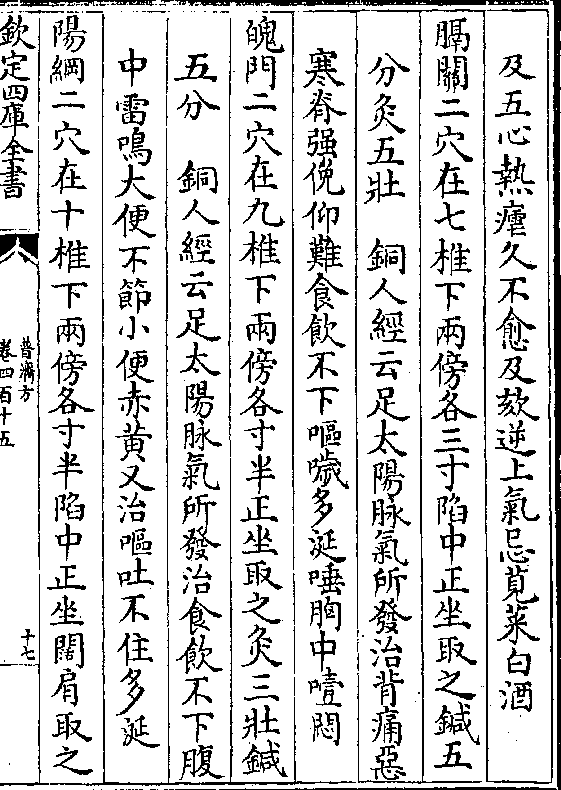 及五心熱瘧久不愈及欬逆上氣忌莧菜白酒
膈關二穴在七椎下兩傍各三寸陷中正坐取之鍼五
分灸五壯　銅人經云足太陽脉氣所發治背痛惡
寒脊强俛仰難食飲不下嘔噦多涎唾胸中噎悶
魄門二穴在九椎下兩傍各寸半正坐取之灸三壯鍼
五分　銅人經云足太陽脉氣所發治食飲不下腹
中雷鳴大便不節小便赤黄又治嘔吐不住多涎
陽綱二穴在十椎下兩傍各寸半陷中正坐闊肩取之
欽定四庫全書
普濟方
卷四百十五
十七